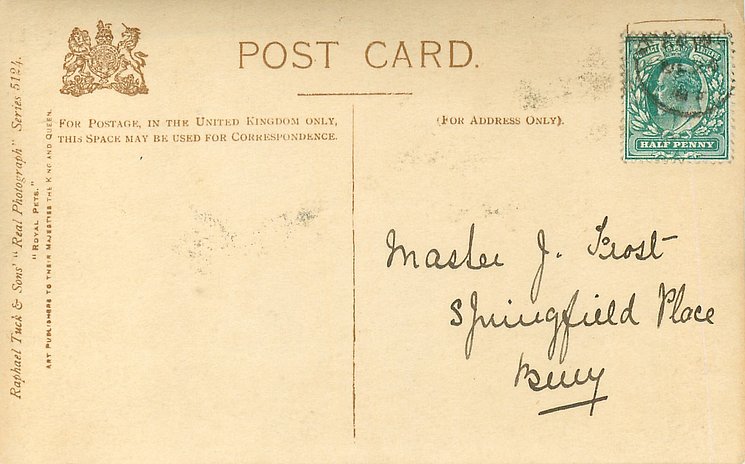 POST CARD.
FOR POSTAGE, IN THE UNITED KINGDOM ONLY,
THIS SPACE MAY BE USED FOR CORRESPONDENCE.
(FOR ADDRESS ONLY).
HALF PENNY
Master J. Frost
Springfield Place
Bury
Raphael Tuck & Sons' "Real Photograph" Series 5124.
"ROYAL PETS."
ART PUBLISHERS TO THEIR MAJESTIES THE KING AND QUEEN.